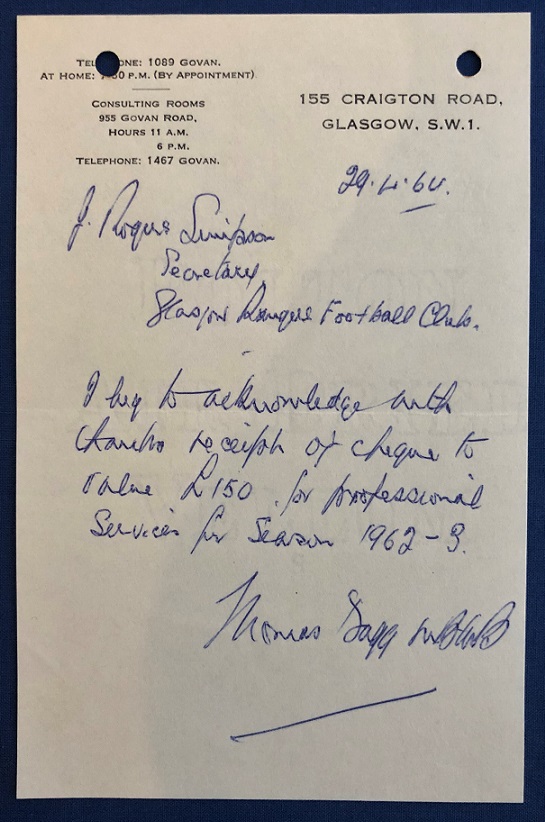 TEL ONE: 1089 GOVAN.
AT HOME: 7 0 P.M. (BY APPOINTMENT)
CONSULTING ROOMS
955 GOVAN ROAD,
HOURS 11 A.M.
6 P.M.
TELEPHONE: 1467 GOVAN.
155 CRAIGTON ROAD,
GLASGOW, S.W.1.
29.4.64.
J. Rogers Simpson
Secretary
Glasgow Rangers Football Club.
I beg to acknowledge with
thanks receipt of cheque to
value £150 for professional
Services for Season 1962-3.
Thomas